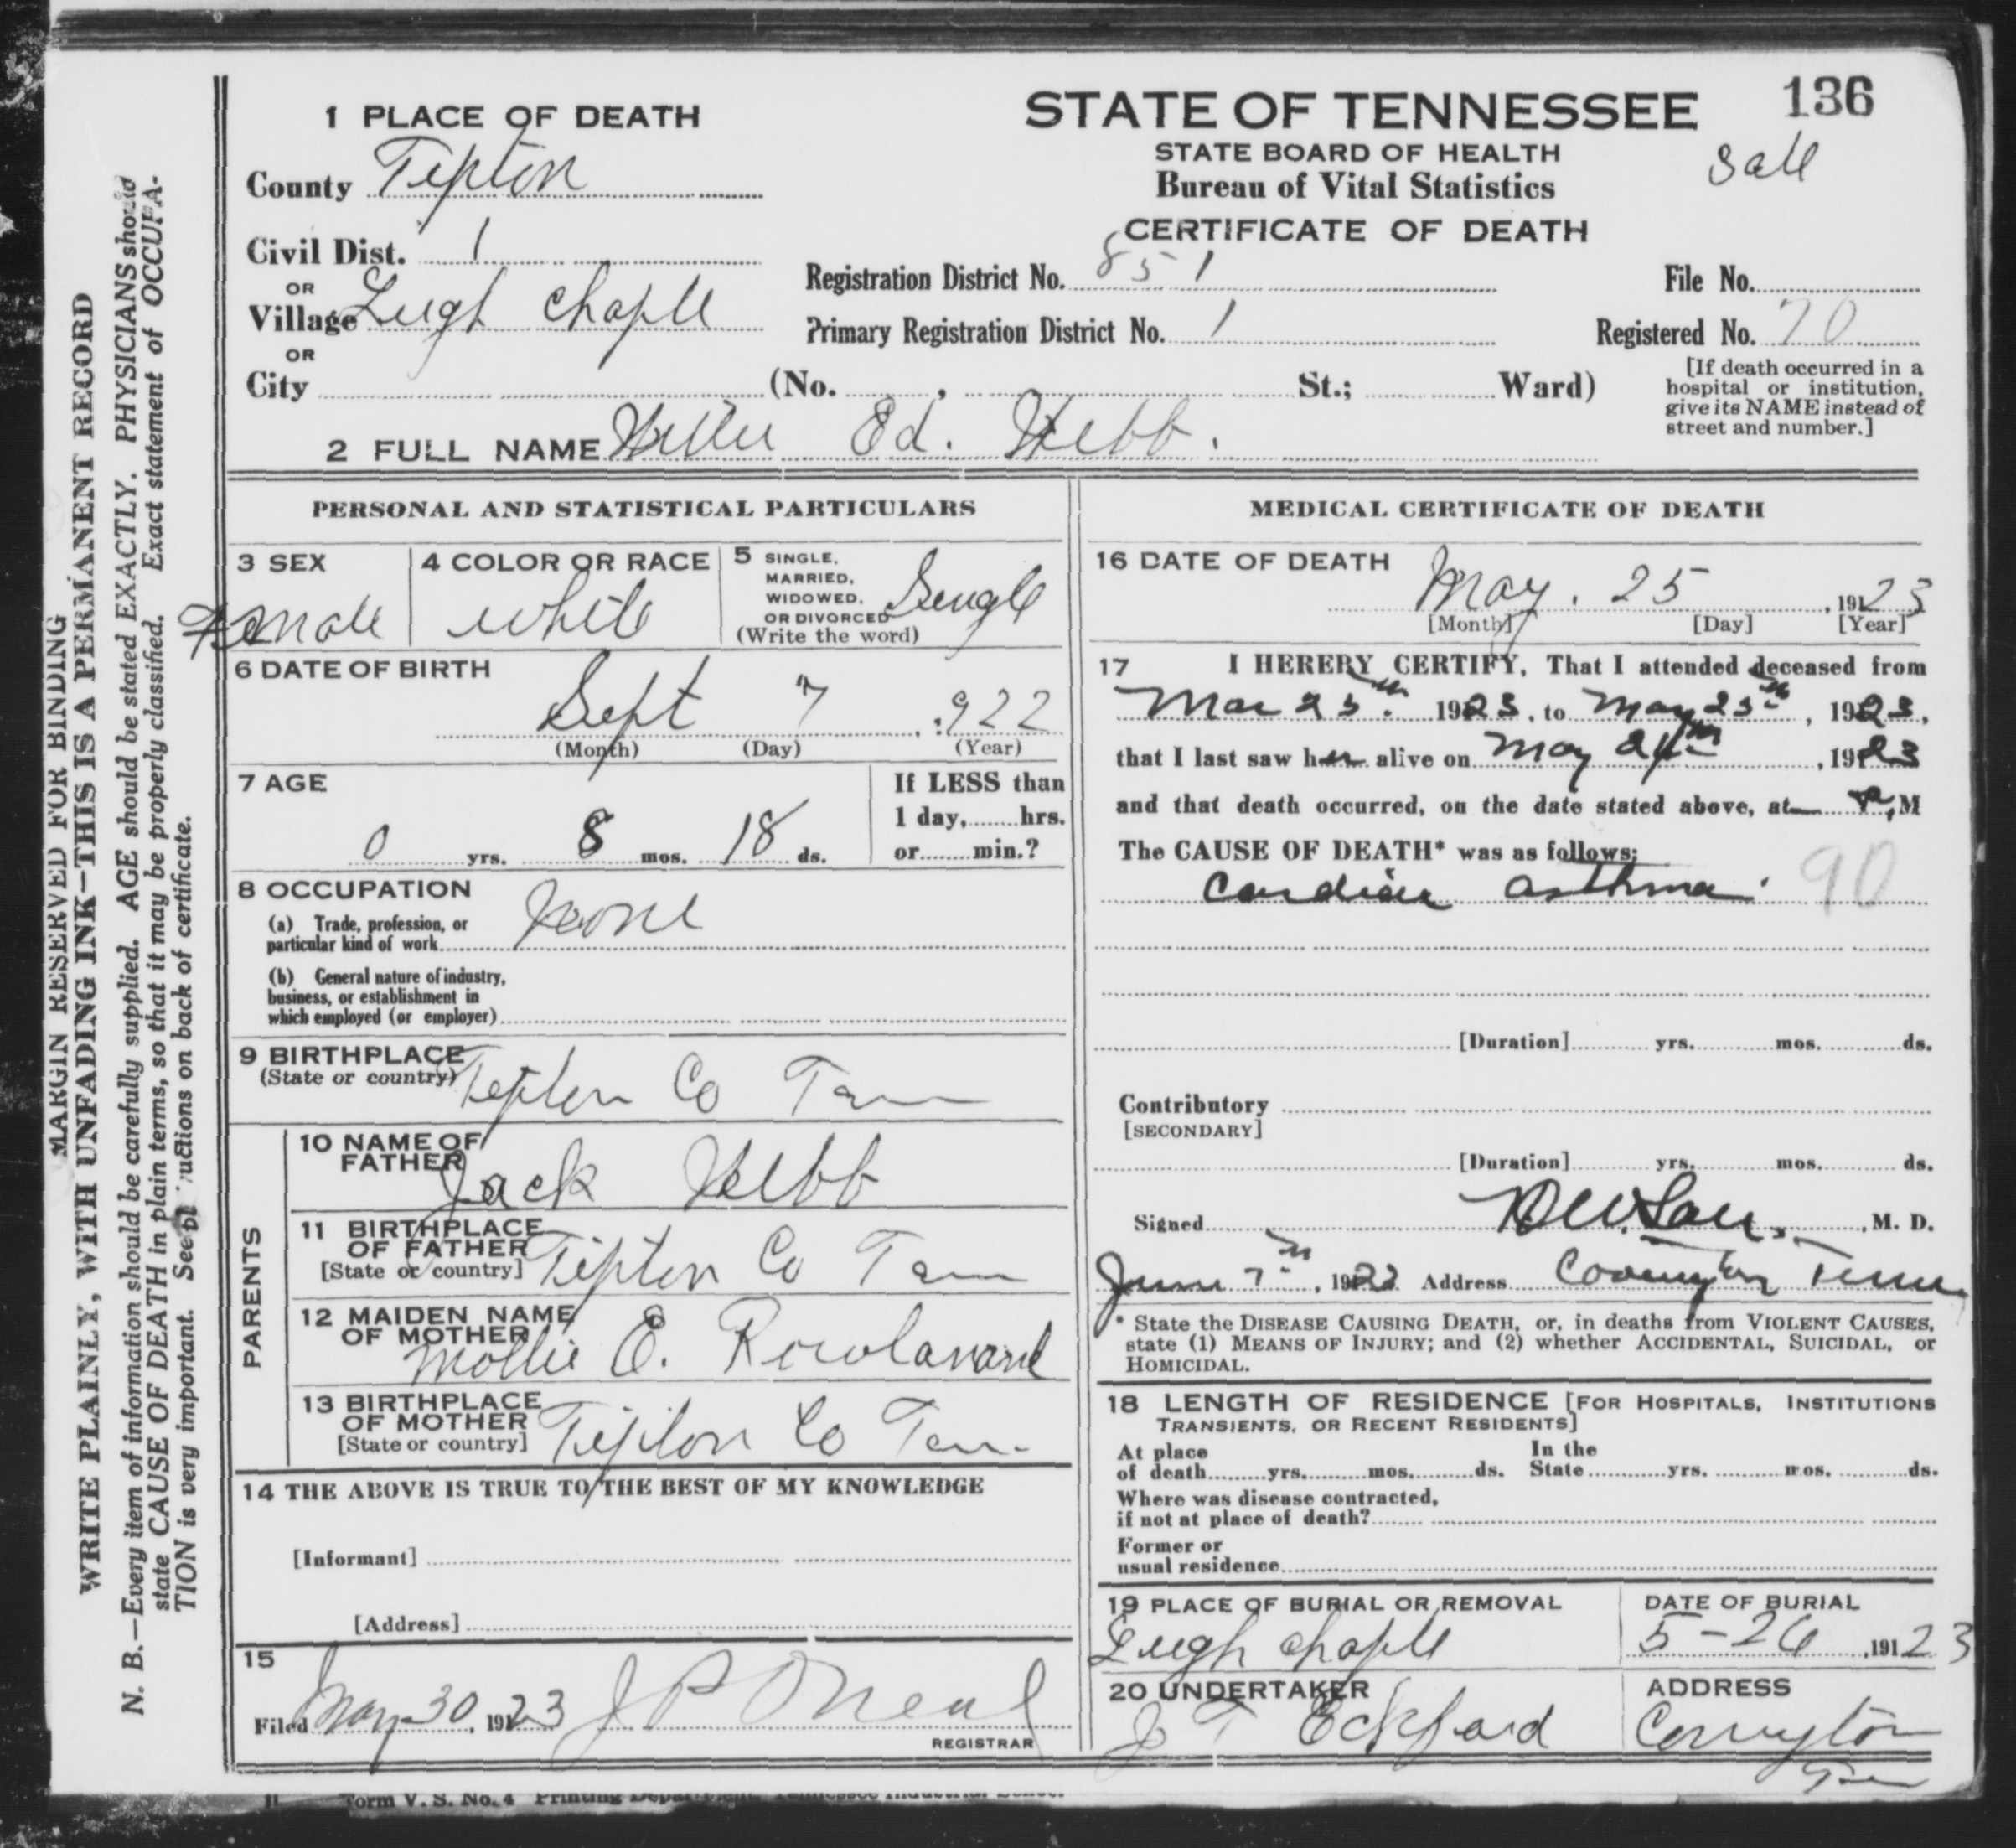 136
STATE OF TENNESSEE
STATE BOARD OF HEALTH
Bureau of Vital Statistics
CERTIFICATE OF DEATH
1 PLACE OF DEATH
County Tipton
Civil Dist. 1
OR
Village Leigh Chaple
OR
City (No. , St.; Ward)
Registration District No. 851
Primary Registration District No. 1
File No.
Registered No. 70
[If death occurred in a
hospital or institution,
give its NAME instead of
street and number.]
2 FULL NAME Willie Ed. Webb.
PERSONAL AND STATISTICAL PARTICULARS
3 SEX
Female
4 COLOR OR RACE
white
5 SINGLE,
MARRIED,
WIDOWED,
OR DIVORCED
(Write the word)
Single
6 DATE OF BIRTH
Sept 7 , 1922
(Month) (Day) (Year)
7 AGE
0 yrs. 8 mos. 18 ds.
If LESS than
1 day, hrs.
or min.?
8 OCCUPATION
(a) Trade, profession, or
particular kind of work None
(b) General nature of industry,
business, or establishment in
which employed (or employer)
9 BIRTHPLACE
(State or country) Tipton Co Tenn
PARENTS
10 NAME OF
FATHER Jack Webb
11 BIRTHPLACE
OF FATHER
[State or country] Tipton Co Tenn
12 MAIDEN NAME
OF MOTHER
Mollie E.
13 BIRTHPLACE
OF MOTHER
[State or country] Tipton Co Ten.
14 THE ABOVE IS TRUE TO THE BEST OF MY KNOWLEDGE
[Informant]
[Address]
15
Filed May 30, 1923 J P ONeal
REGISTRAR
MEDICAL CERTIFICATE OF DEATH
16 DATE OF DEATH
May. 25 , 1923
[Month] [Day] [Year]
17 I HEREBY CERTIFY, That I attended deceased from
Mar 25th 1923, to May 25th, 1923,
that I last saw her alive on May 24th , 1923
and that death occurred, on the date stated above, at P, M
The CAUSE OF DEATH* was as follows:
Cardiac asthma. 90
[Duration] yrs. mos. ds.
Contributory
[SECONDARY]
[Duration] yrs. mos. ds.
Signed , M. D.
June 7th, 1923 Address Covington Tenn
* State the DISEASE CAUSING DEATH, or, in deaths from VIOLENT CAUSES,
state (1) MEANS OF INJURY; and (2) whether ACCIDENTAL, SUICIDAL, or
HOMICIDAL.
18 LENGTH OF RESIDENCE [FOR HOSPITALS, INSTITUTIONS
TRANSIENTS, OR RECENT RESIDENTS]
At place
of death yrs. mos. ds. In the State yrs. mos. ds.
Where was disease contracted,
if not at place of death?
Former or
usual residence
19 PLACE OF BURIAL OR REMOVAL
Leigh Chaple
DATE OF BURIAL
5-26 , 1923
20 UNDERTAKER
J T Eckford
ADDRESS
Covington
Ten
MARGIN RESERVED FOR BINDING
WRITE PLAINLY, WITH UNFADING INK—THIS IS A PERMANENT RECORD
N. B.—Every item of information should be carefully supplied. AGE should be stated EXACTLY. PHYSICIANS should
state CAUSE OF DEATH in plain terms, so that it may be properly classified. Exact statement of OCCUPA-
TION is very important. See on back of certificate.
Form V. S. No. 4